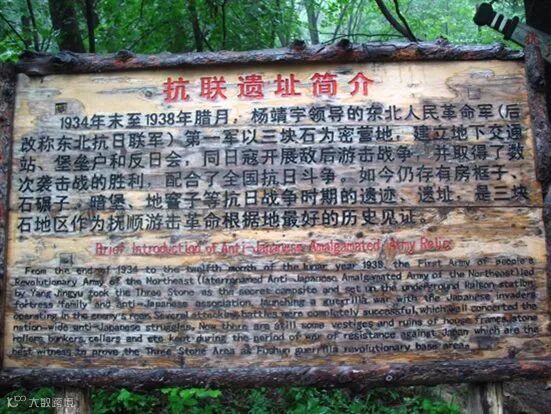 抗联遗址简介
1934年末至1938年腊月，杨靖宇领导的东北人民革命军（后
改称东北抗日联军）第一军以三块石为密营地，建立地下交通
站、堡垒户和反日会，同日寇开展敌后游击战争，并取得了数
次袭击战的胜利，配合了全国抗日斗争。如今仍存有房框子、
石碾子、暗堡、地窨子等抗日战争时期的遗迹、遗址，是三块
石地区作为抚顺游击革命根据地最好的历史见证。
Brief Introduction of Anti-Japanese Amalgamated Army Relic
From the end of 1934 to the twelfth month of the lunar year 1938, the First Army of people's
Revolutionary Army of the Northeast (laterrenamed Anti-Japanese Amalgamated Army of the Northeast)led
by Yang Jingyu took the Three Stone as the secret campsite and set up the underground liaison station,
fortress family and anti-Japanese association, launching a guerrilla war with the Japanese invaders
operating in the enemy's rear. Several attacking battles were completely successful, which well concerted
nation-wide anti-Japanese struggles. Now there are still some vestiges and ruins of house frames, stone
rollers, bunkers, cellars and etc kept during the period of war of resistance against Japan which are the
best witness to prove the Three Stone Area as Fushun guerrilla revolutionary base area.
大数跨境